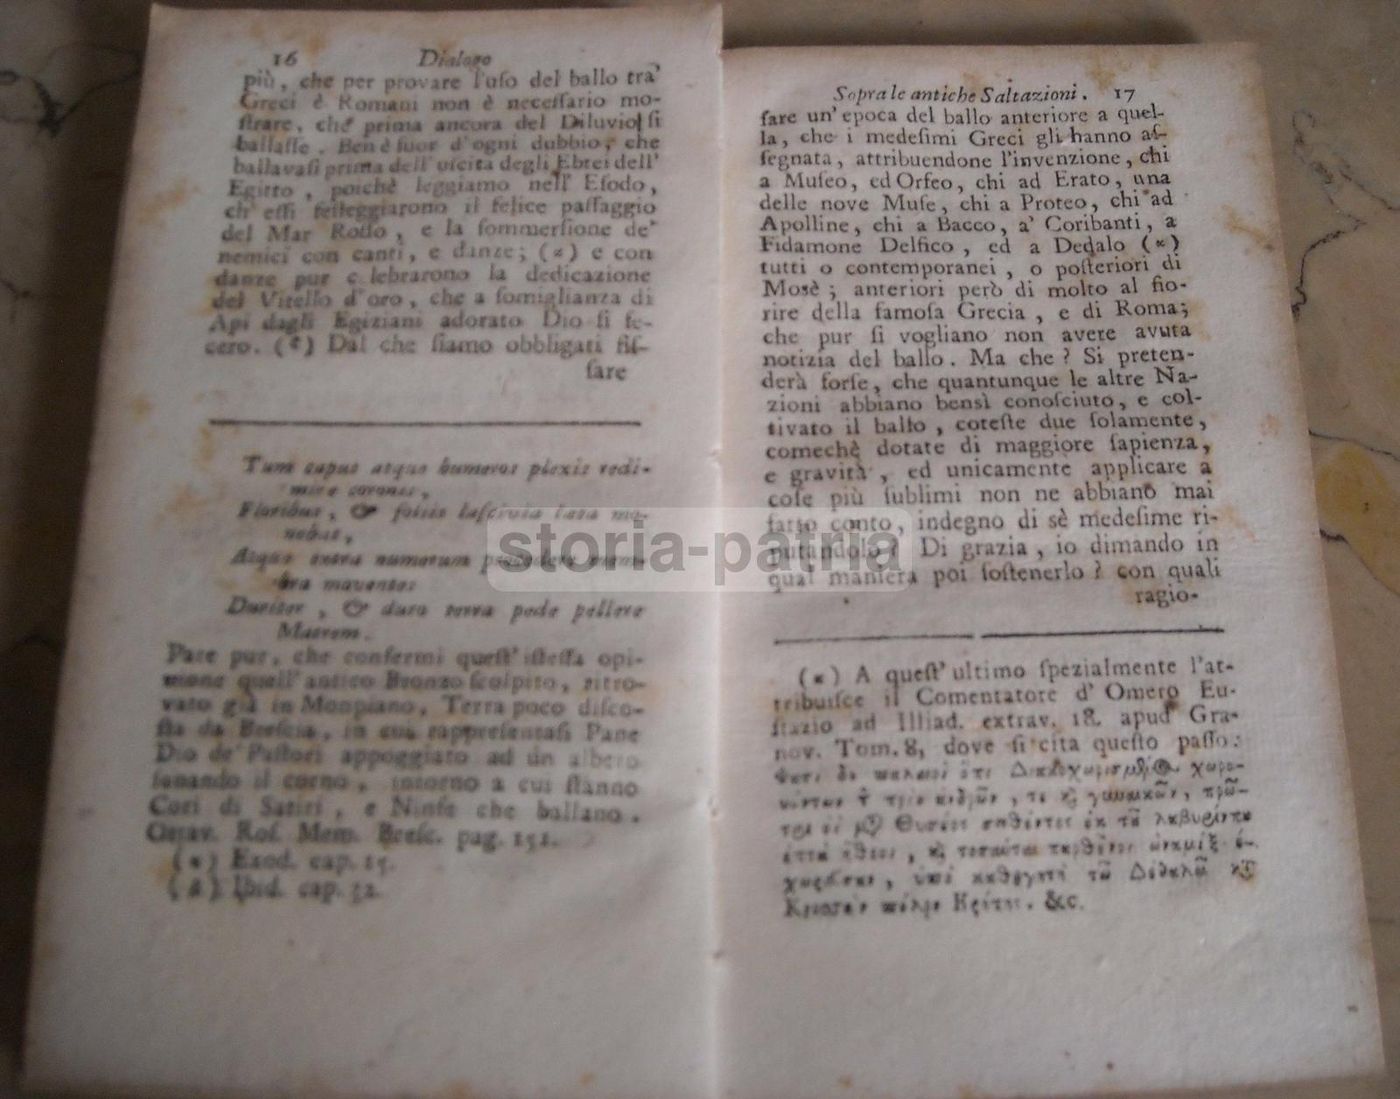 16 Dialogo
più, che per provare l'uſo del ballo tra'
Greci è Romani non è neceſſario mo-
ſtrare, che prima ancora del Diluvio ſi
ballaſſe. Ben è fuor d'ogni dubbio, che
ballavaſi prima dell'uſcita degli Ebrei dell'
Egitto, poichè leggiamo nell' Eſodo,
ch' eſſi feſteggiarono il felice paſſaggio
del Mar Roſſo, e la ſommerſione de'
nemici con canti, e danze; (*) e con
danze pur c lebrarono la dedicazione
del Vitello d'oro, che a ſomiglianza di
Api dagli Egiziani adorato Dio ſi fe-
cero. ( ) Dal che ſiamo obbligati fiſ-
ſare
Tum caput atque humeros plexis redi-
mire coronis,
Floribus, & foliis laſcivia læta mo-
nebat,
Atque extra numerum procedere mem-
bra moventes
Duriter, & duro terra pede pellere
Matrem.
Pare pur, che confermi queſt'iſteſſa opi-
nione quell'antico Bronzo ſcolpito, ritro-
vato già in Monpiano, Terra poco diſco-
ſta da Breſcia, in cui rappreſentaſi Pane
Dio de' Paſtori appoggiato ad ùn albero
ſonando il corno, intorno a cui ſtanno
Cori di Satiri, e Ninfe che ballano.
Ottav. Roſ. Mem. Breſc. pag. 151.
(*) Exod. cap. 15.
( ) Ibid. cap. 32.
Sopra le antiche Saltazioni. 17
ſare un'epoca del ballo anteriore a quel-
la, che i medeſimi Greci gli hanno aſ-
ſegnata, attribuendone l'invenzione, chi
a Muſeo, ed Orfeo, chi ad Erato, una
delle nove Muſe, chi a Proteo, chi ad
Apolline, chi a Bacco, a' Coribanti, a
Fidamone Delfico, ed a Dedalo (*)
tutti o contemporanei, o poſteriori di
Mosè; anteriori però di molto al fio-
rire della famoſa Grecia, e di Roma;
che pur ſi vogliano non avere avuta
notizia del ballo. Ma che? Si preten-
derà forſe, che quantunque le altre Na-
zioni abbiano bensì conoſciuto, e col-
tivato il ballo, coteſte due ſolamente,
comechè dotate di maggiore ſapienza,
e gravità, ed unicamente applicare a
coſe più ſublimi non ne abbiano mai
fatto conto, indegno di sè medeſime ri-
putandolo? Di grazia, io dimando in
qual maniera poi ſoſtenerlo? con quali
ragio-
(*) A queſt'ultimo ſpezialmente l'at-
tribuiſce il Comentatore d'Omero Eu-
ſtazio ad Illiad. extrav. 18. apud Gra-
nov. Tom. 8, dove ſi cita queſto paſſo:
Θυσέως
&c.
storia-patria